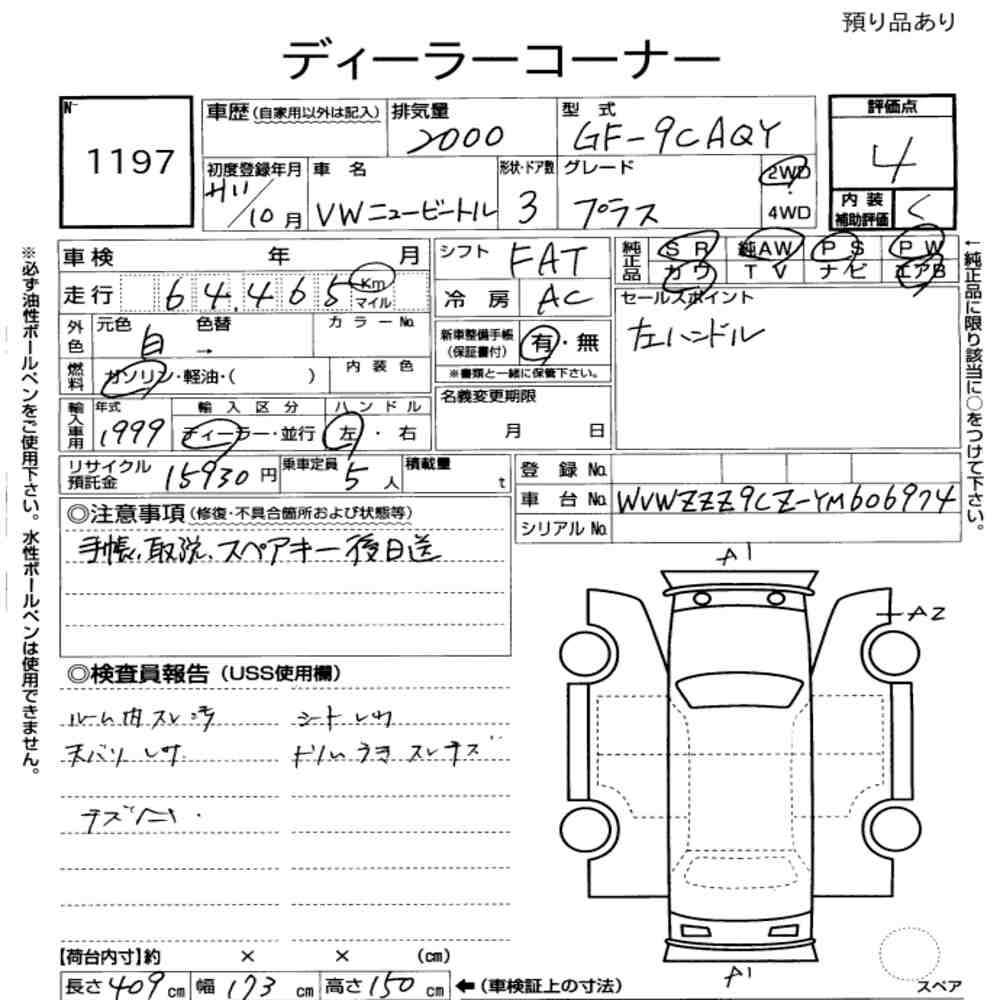 預り品あり
ディーラーコーナー
No. 1197
車歴(自家用以外は記入) 排気量 2000 型式 GF-9CAQY
評価点 4
初度登録年月 H11/10月 車名 VWニュービートル 形状・ドア数 3 グレード プラス 2WD・4WD
内装補助評価 C
車検 年 月
シフト FAT
純正品 SR 純AW PS PW
カワ TV ナビ エアB
走行 64,465 Km マイル
冷房 AC
セールスポイント
左ハンドル
外色 元色 白 色替 → カラーNo.
新車整備手帳(保証書付) 有・無
※書類と一緒に保管下さい。
燃料 ガソリン・軽油・( ) 内装色
名義変更期限
月 日
輸入車用 年式 1999 輸入区分 ディーラー・並行 ハンドル 左・右
リサイクル預託金 15930円 乗車定員 5人 積載量 t
登録No.
車台No. WVWZZZ9CZ-YM606974
シリアルNo.
◎注意事項(修復・不具合箇所および状態等)
手帳、取説、スペアキー後日送
◎検査員報告(USS使用欄)
ルーム内スレ汚 シート
天バリ
ドリムうき スレキズ
【荷台内寸】約 × × (cm)
長さ409cm 幅173cm 高さ150cm ←(車検証上の寸法)
A1
A2
A1
スペア
※必ず油性ボールペンをご使用下さい。水性ボールペンは使用できません。
←純正品に限り該当に○をつけて下さい。